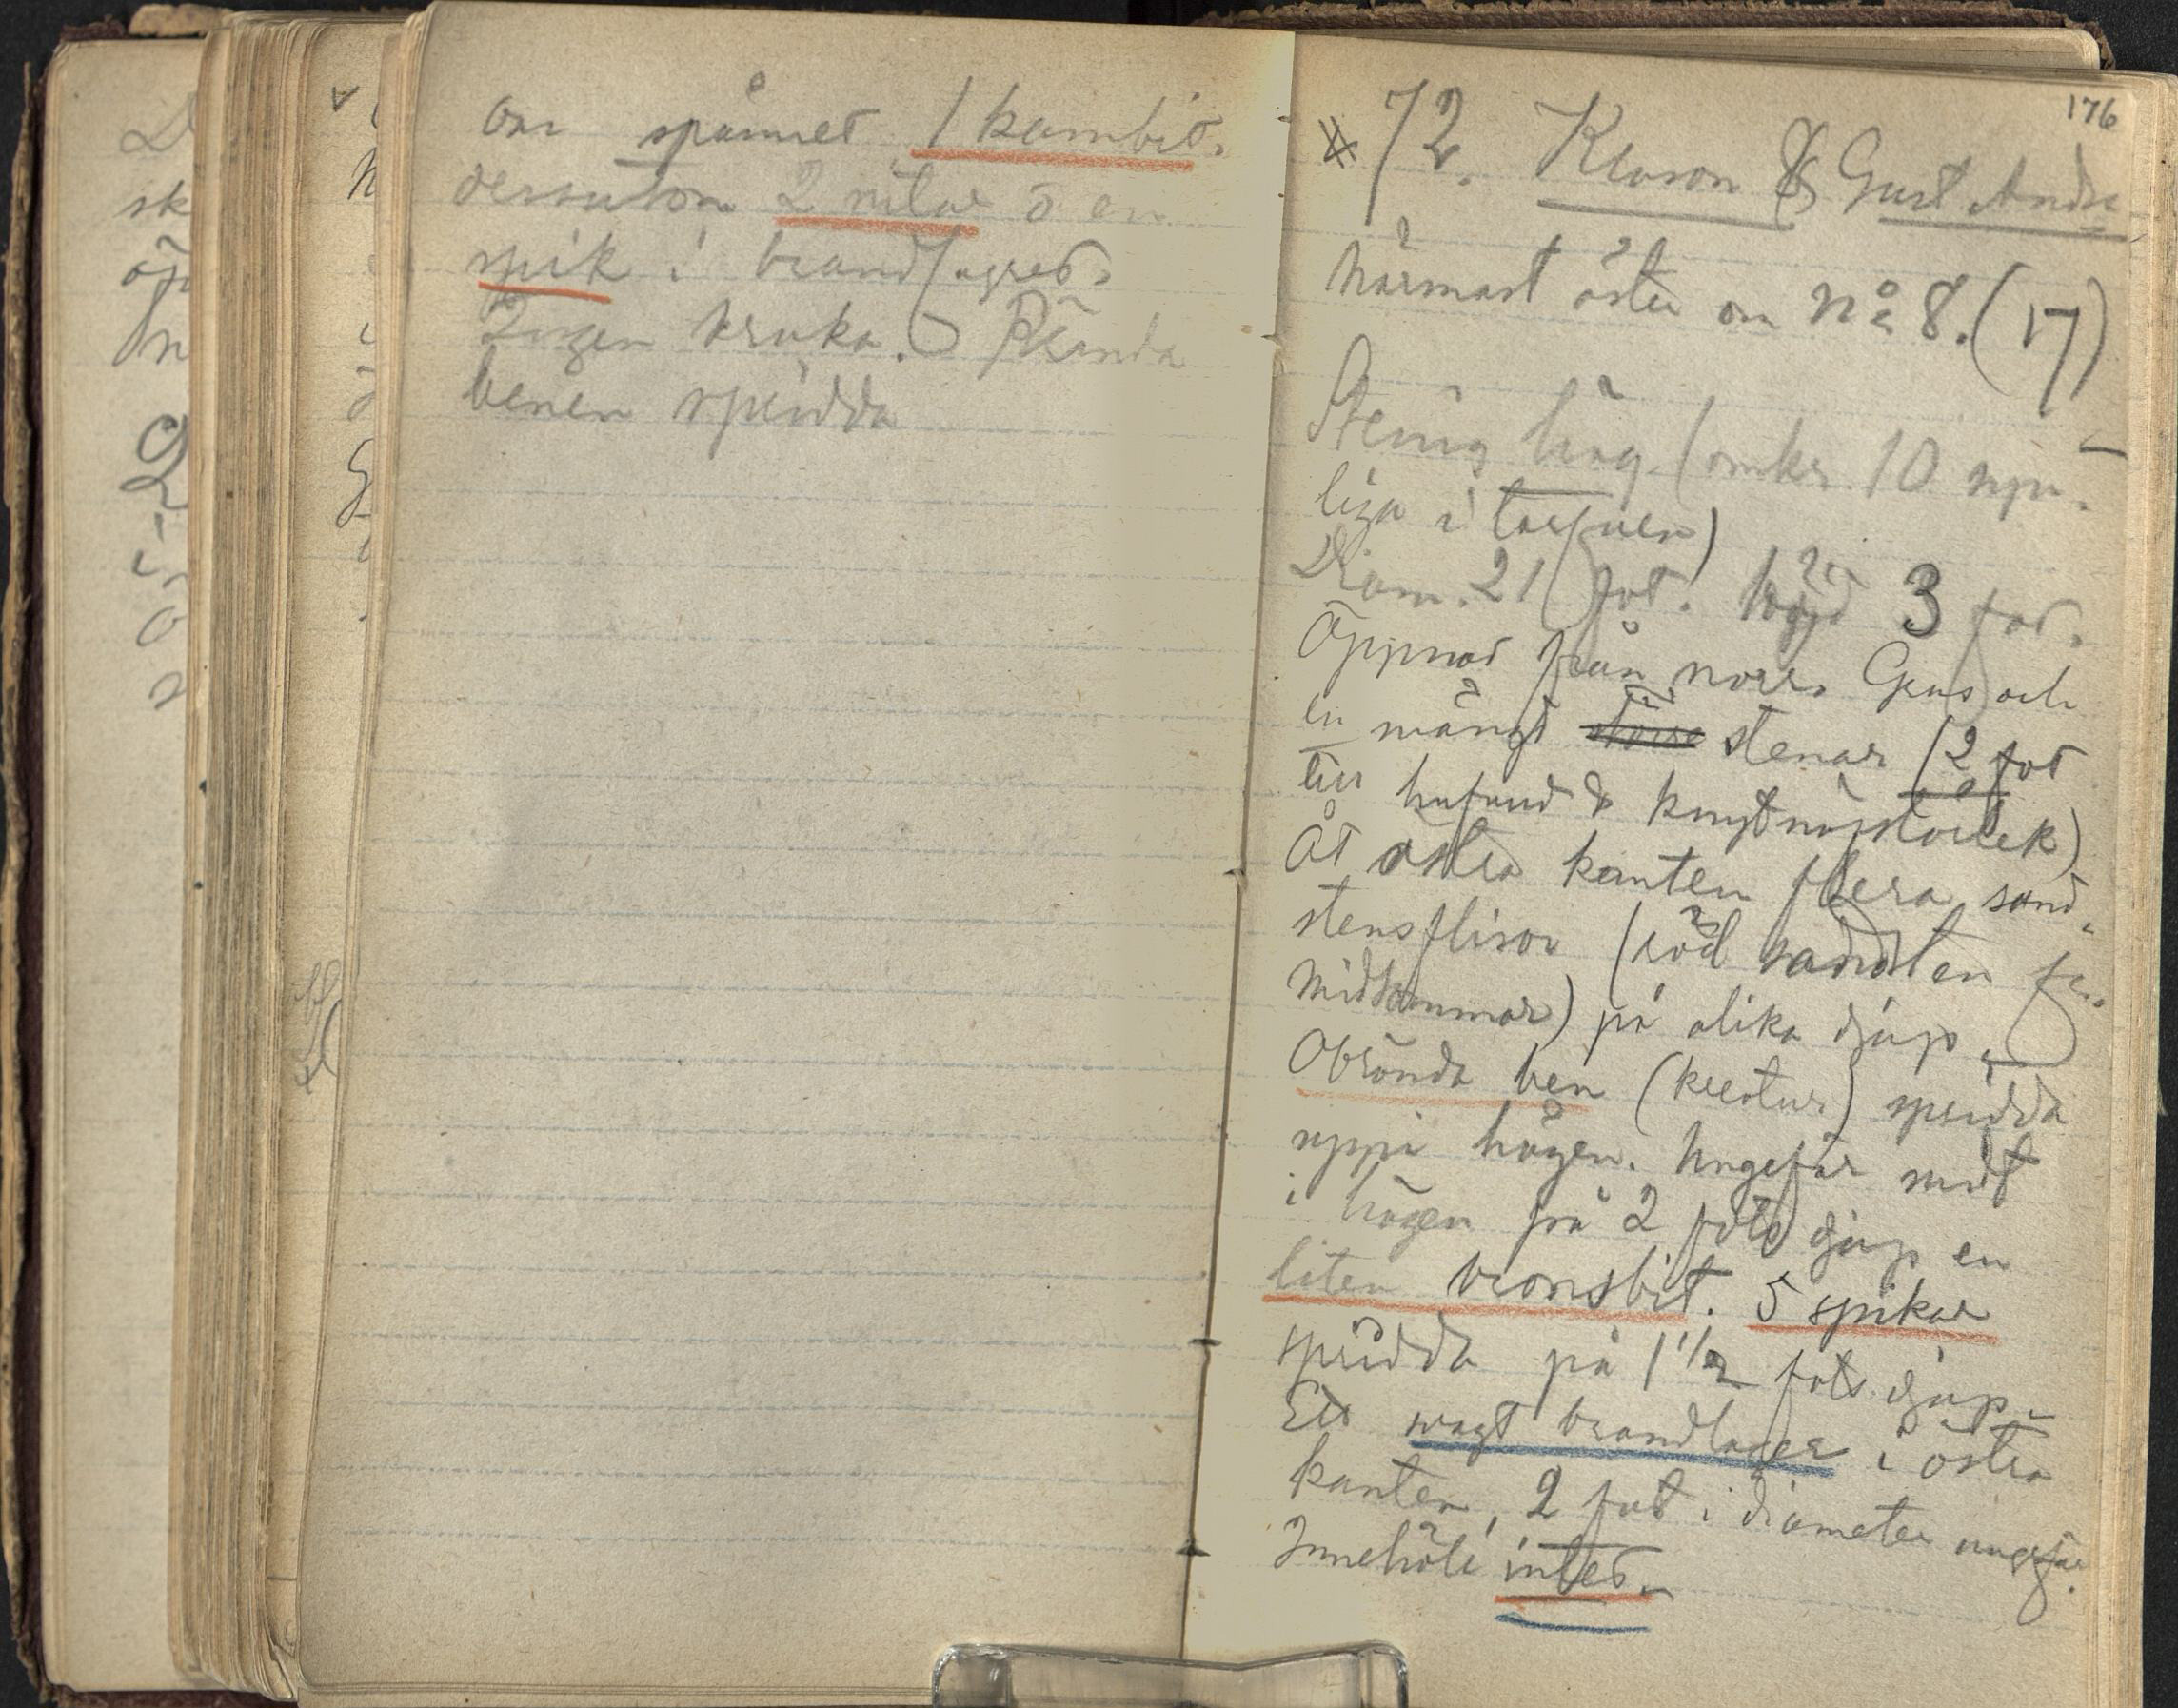 om spännet 1 kambit.
dessutom 2 nitar o en
spik i brandlagret.
Ingen kruka. Brända
benen spridda
176
72. Klason & Gust Anders
närmast öster om No 8. (17)
Stenig hög (omkr 10 syn-
liga i torfven)
Diam. 21 fot. Höjd 3 fot.
Öppnad från norr. Grus och
en mängd större stenar (2 fot
till hufvud & knytnäfstorlek)
Åt östra kanten flera sand-
stensflisor (röd sandsten fr.
Midsommar) på olika djup.
Obrända ben (kreatur) spridda
uppi högen. Ungefär midt
i högen på 2 fots djup en
liten bronsbit. 5 spikar
spridda på 1 1/2 fots djup.
Ett svagt brandlager i östra
kanten, 2 fot i diameter ungefär.
Innehöll intet.